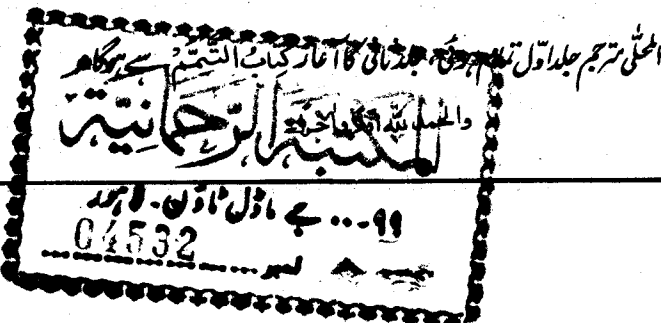 المحلّٰی مترجم جلد اوّل تمام ہوئی، جلد ثانی کا آغاز کتابُ التَّیَمُّمْ سے ہوگا
والحمد للہ
المكتبة الرحمانية
۹۹... جے ماڈل ٹاؤن - لاہور
نمبر ... 04532